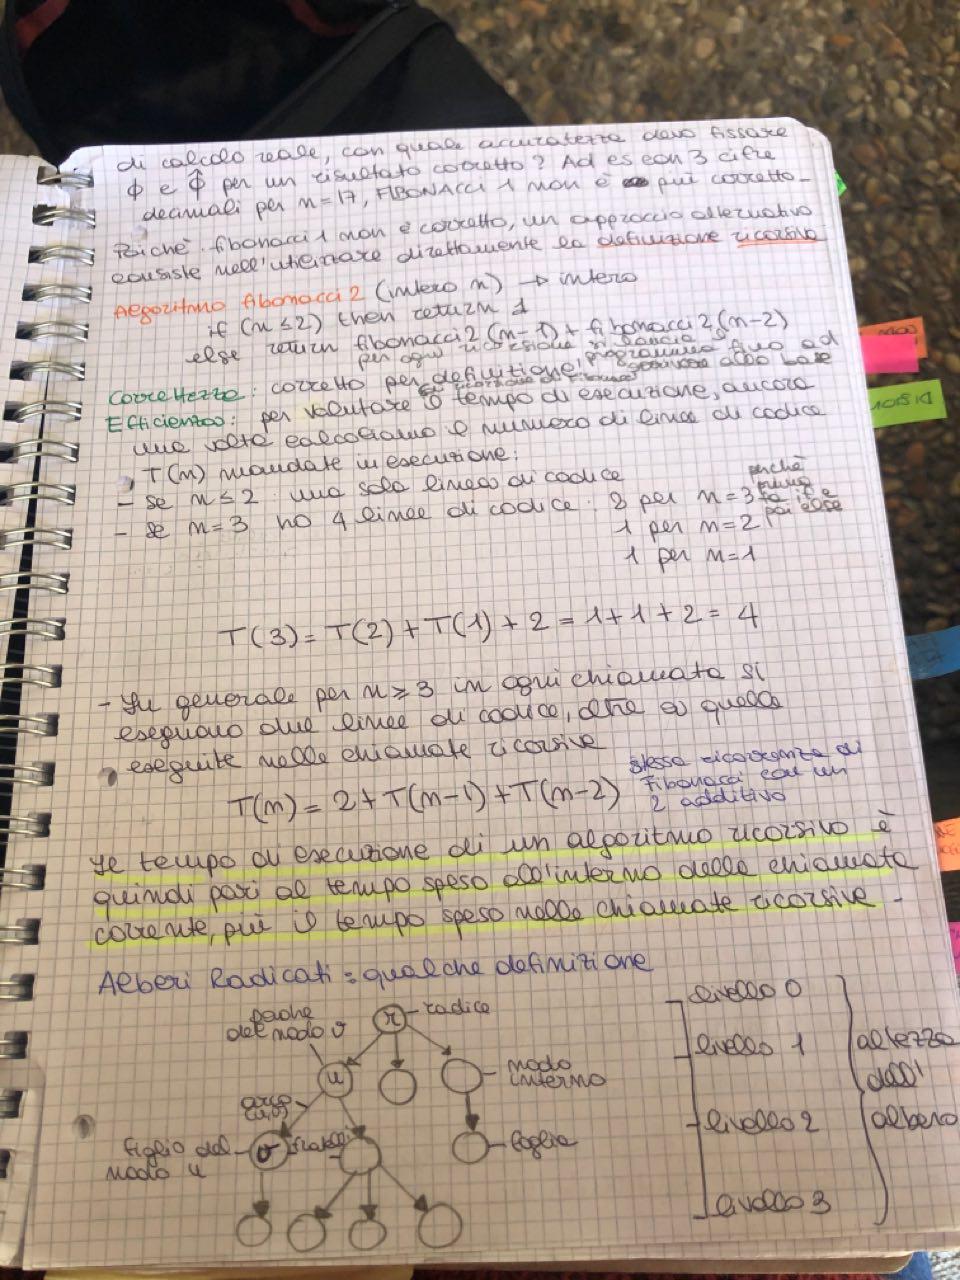 di calcolo reale, con quale accuratezza devo fissare
ϕ e ϕ̂ per un risultato corretto? Ad es con 3 cifre
decimali per n=17, FIBONACCI 1 non è più corretto-
Poichè fibonacci 1 non è corretto, un approccio alternativo
consiste nell'utilizzare direttamente la definizione ricorsiva
Algoritmo fibonacci 2 (intero n) → intero
if (n ≤ 2) then return 1
else return fibonacci 2 (n-1) + fibonacci 2 (n-2)
per ogni ricorsione si lancia
programma fino ad
Correttezza: corretto per definizione
alla base
Efficienza: per valutare il tempo di esecuzione, ancora
una volta calcoliamo il numero di linee di codice
T(n) mandate in esecuzione:
- se n ≤ 2 : una sola linea di codice
- se n=3 ho 4 linee di codice : 2 per n=3
perchè
prima
fa if e
poi else
1 per n=2
1 per n=1
T(3) = T(2) + T(1) + 2 = 1+1+2 = 4
- In generale per n ≥ 3 in ogni chiamata si
eseguono due linee di codice, oltre a quelle
eseguite nelle chiamate ricorsive
T(n) = 2 + T(n-1) + T(n-2)
stessa ricorrenza di
Fibonacci con un
2 additivo
Il tempo di esecuzione di un algoritmo ricorsivo è
quindi pari al tempo speso all'interno della chiamata
corrente, più il tempo speso nelle chiamate ricorsive -
Alberi Radicati : qualche definizione
padre
del nodo v
r
radice
livello 0
u
nodo
interno
livello 1
altezza
dell'
albero
arco
(u,v)
figlio del
nodo u
v
fratelli
foglia
livello 2
livello 3
DISPOSI